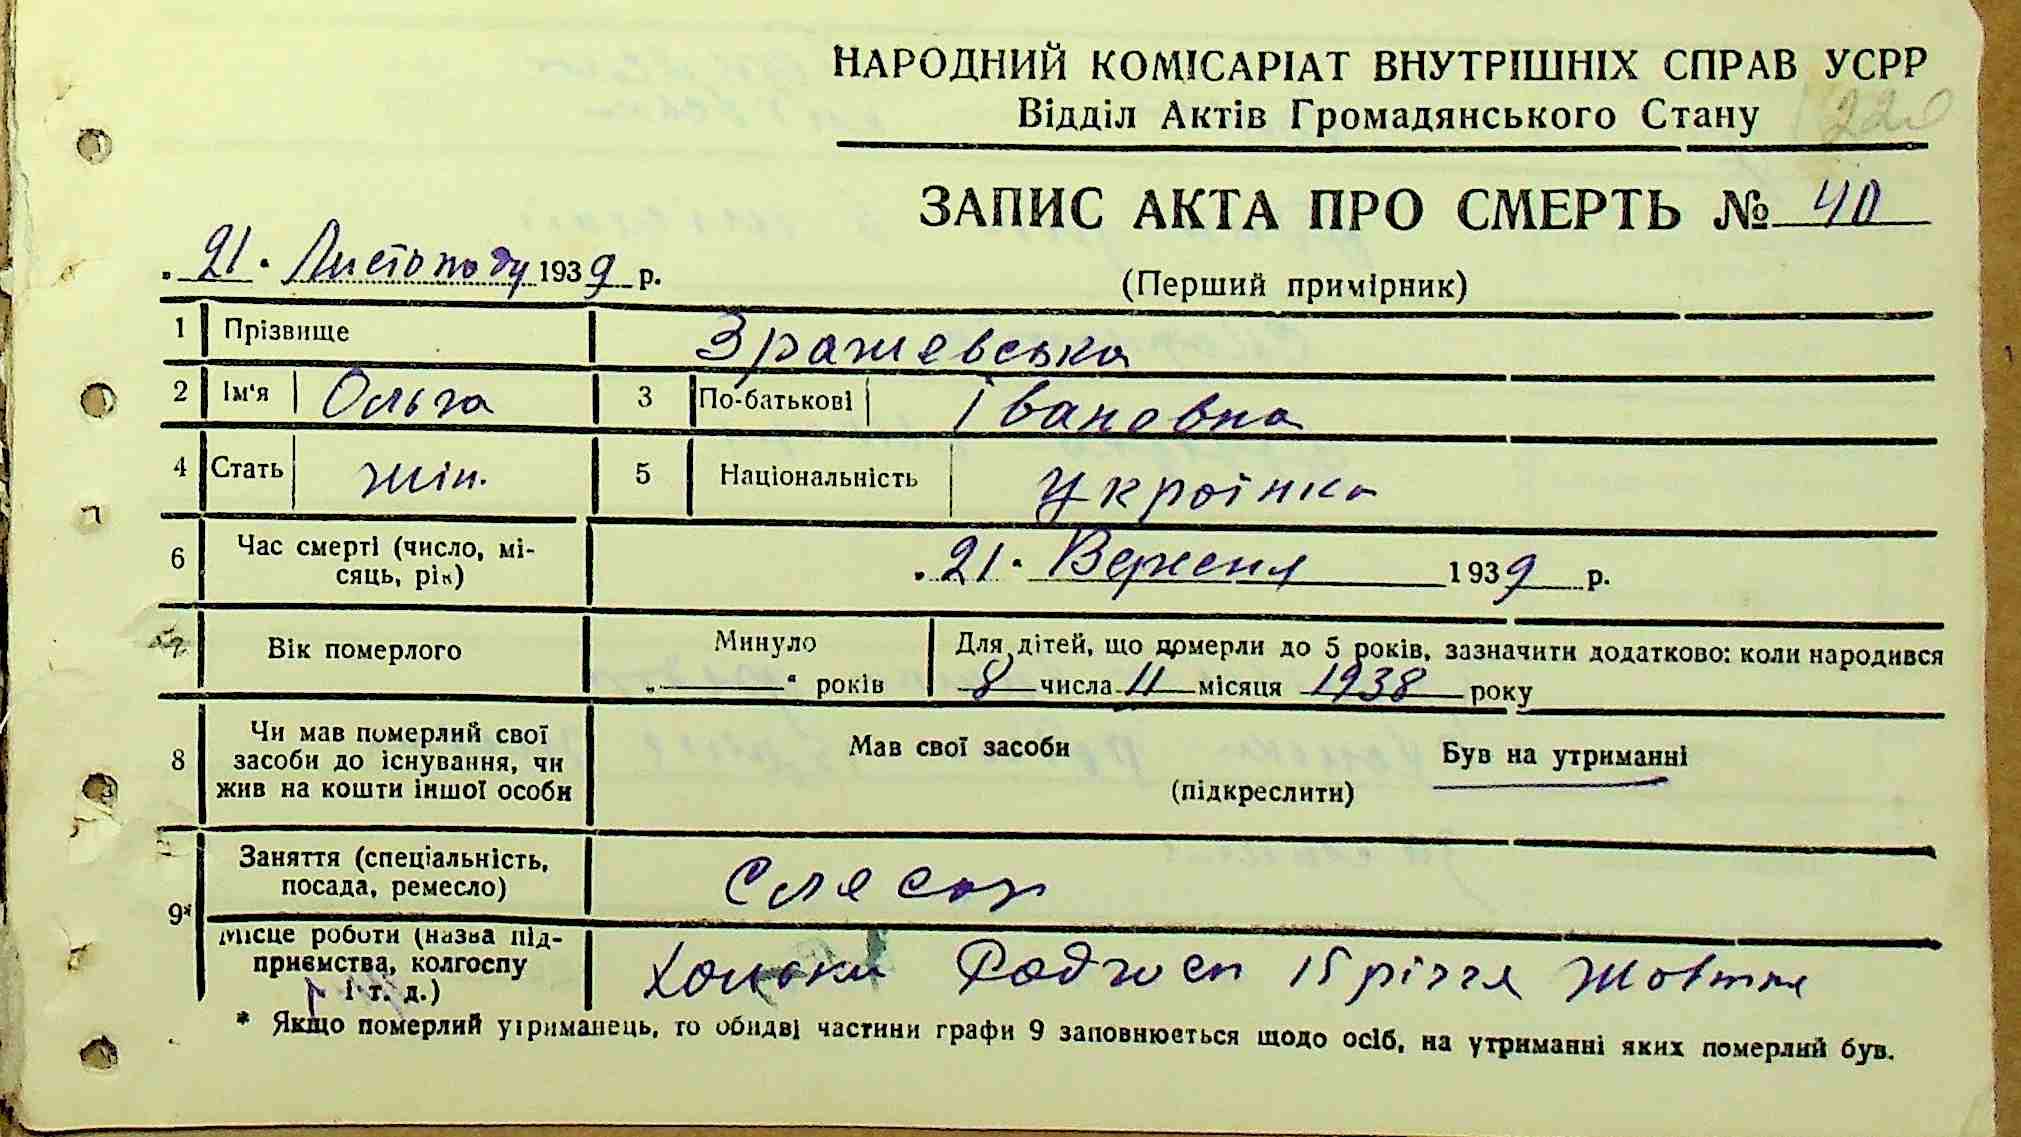 НАРОДНИЙ КОМІСАРІАТ ВНУТРІШНІХ СПРАВ УСРР
Відділ Актів Громадянського Стану
ЗАПИС АКТА ПРО СМЕРТЬ № 40
21 Листопаду 1939 р.
(Перший примірник)
1 Прізвище Зражевська
2 Ім'я Ольга 3 По-батькові Івановна
4 Стать жін. 5 Національність Українка
6 Час смерті (число, мі-
сяць, рік) 21 Вересня 1939 р.
Вік померлого Минуло
„ — “ років
Для дітей, що померли до 5 років, зазначити додатково: коли народився
8 числа 11 місяця 1938 року
8 Чи мав померлий свої
засоби до існування, чи
жив на кошти іншої особи
Мав свої засоби Був на утриманні
(підкреслити)
9* Заняття (спеціальність,
посада, ремесло) Слесар
Місце роботи (назва під-
приємства, колгоспу
і т. д.) Радгосп 15 річчя Жовтня
* Якщо померлий утриманець, то обидві частини графи 9 заповнюється щодо осіб, на утриманні яких померлий був.